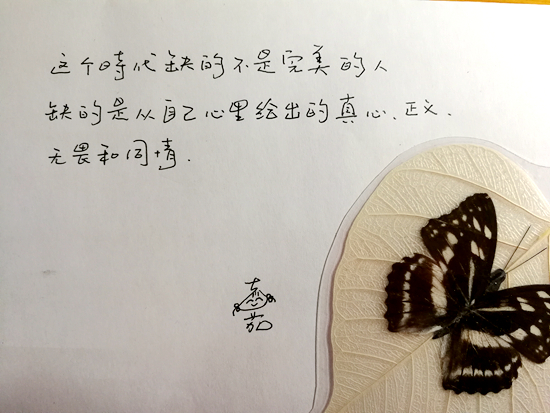 这个時代缺的不是完美的人
缺的是从自己心里给出的真心、正义、
无畏和同情.